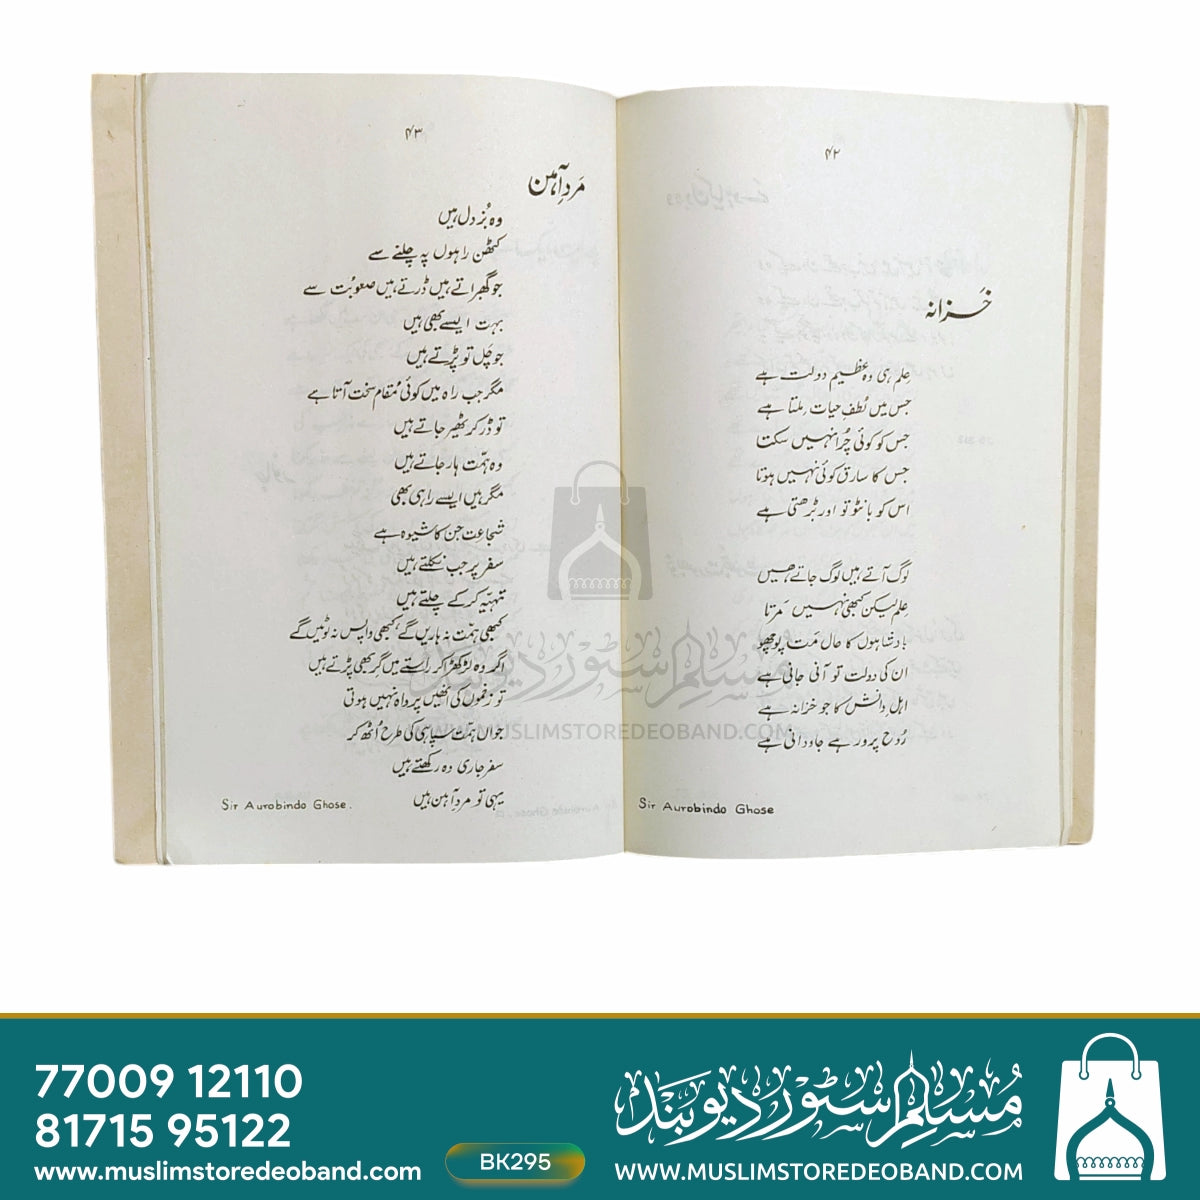 ۴۲
خزانہ
عِلم ہی وہ عَظیم دولت ہے
جس میں لُطفِ حیات مِلتا ہے
جس کو کوئی چُرا نہیں سکت
جس کا سارق کوئی نہیں ہوتا
اس کو بانٹو تو اور بڑھتی ہے
لوگ آتے ہیں لوگ جاتے ہیں
عِلم لیکن کبھی نہیں مَرتا
بادشاہوں کا حال مَت پوچھو
ان کی دولت تو آنی جانی ہے
اہلِ دانش کا جو خزانہ ہے
رُوح پرور ہے جاودانی ہے
Sir Aurobindo Ghose
۴۳
مَردِ آہن
وہ بُزدل ہیں
کٹھن راہوں پہ چلنے سے
جو گھبراتے ہیں ڈرتے ہیں صعوبُت سے
بہت ایسے بھی ہیں
جو چَل تو پڑتے ہیں
مگر جب راہ میں کوئی مُقام سخت آتا ہے
تو ڈر کر ٹھیر جاتے ہیں
وہ ہمّت ہار جاتے ہیں
مگر ہیں ایسے راہی بھی
شجاعت جن کا شیوہ ہے
سفر پر جب نکلتے ہیں
تہیّہ کر کے چلتے ہیں
کبھی ہمّت نہ ہاریں گے کبھی واپس نہ لوٹیں گے
اگر وہ لڑکھڑا کر راستے میں گر بھی پڑتے ہیں
تو زخموں کی انھیں پرواہ نہیں ہوتی
جواں ہمّت سپاہی کی طرح اُٹھ کر
سفر جاری وہ رکھتے ہیں
یہی تو مردِ آہن ہیں
Sir Aurobindo Ghose.
مُسلم سٹور دیوبند
WWW.MUSLIMSTOREDEOBAND.COM
77009 12110
81715 95122
www.muslimstoredeoband.com
BK295
مُسلم سٹور دیوبند
WWW.MUSLIMSTOREDEOBAND.COM